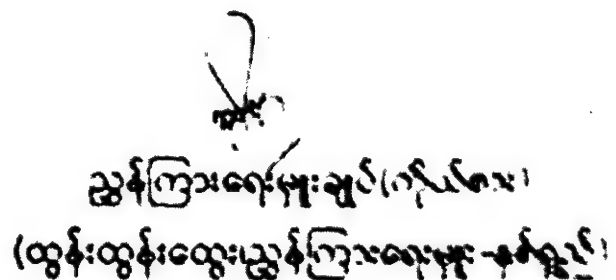 ညွှန်ကြားရေးမှူးချုပ်(ကိုယ်စား)
(ထွန်းထွန်းထွေး၊ညွှန်ကြားရေးမှူး-နှစ်ရှည်)